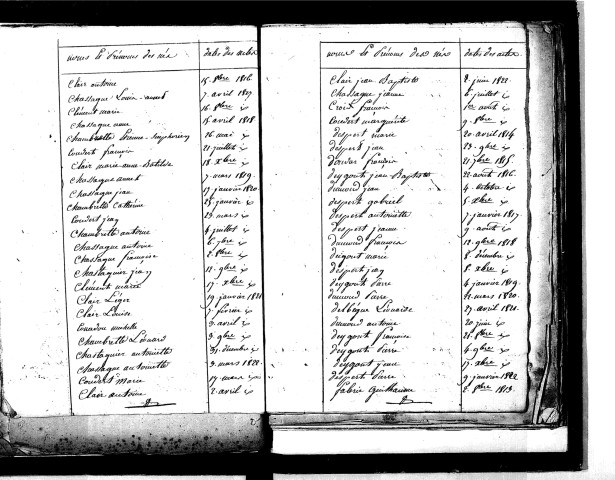 noms et Prénoms des nés dates des actes
Clair antoine 15 8bre 1816
Chassaque Louis-annet 7 avril 1817
Clément marie 16 8bre id
Chassaque anne 15 avril 1818
Chambrette Etienne-Symphorien 16 mai id
Coudert françois 21 juillet id
Clair marie-anne Batilde 18 xbre id
Chassaque annet 7 mars 1819
Chassaque jean 17 janvier 1820
Chambrette Catherine 25 janvier id
Coudert jean 29 mars id
Chambrette antoine 4 juillet id
Chassaque antoine 6 7bre id
Chassaque françoise 2 8bre id
Chastanier jean 11 9bre id
Clément marie 17 xbre id
Clair Léger 19 janvier 1821
Clair Louise 7 février id
michelle 3 avril id
Chambrette Léonard 3 9bre id
Chastanier antoinette 31 décembre id
Chassaque antoinette 3 mars 1822
Coudert marie 17 mars id
Clair antoine 2 avril id
noms et Prénoms des nés dates des actes
Clair jean Baptiste 8 juin 1822
Chassaque jeanne 6 juillet id
Croix françois août id
Coudert marguerite 9 8bre id
despert marie 20 avril 1814
despert jean 23 9bre id
françois 21 7bre 1815
deygout jean Baptiste 22 août 1816
dumond jean 4 octobre id
despert gabriel 8 xbre id
despert antoinette 7 janvier 1817
despert jeanne 9 août id
dumond françois 12 9bre 1818
marie 8 décembre id
despert jean 8 xbre id
deygout Pierre 4 janvier 1819
dumond Pierre 21 mars 1820
Léonarde 27 avril 1821
dumond antoine 20 juin id
deygout françoise 21 8bre id
deygout Pierre 6 9bre id
deygout jean 17 xbre id
despert Pierre 9 janvier 1822
fabrie Guillaume 2 8bre 1813